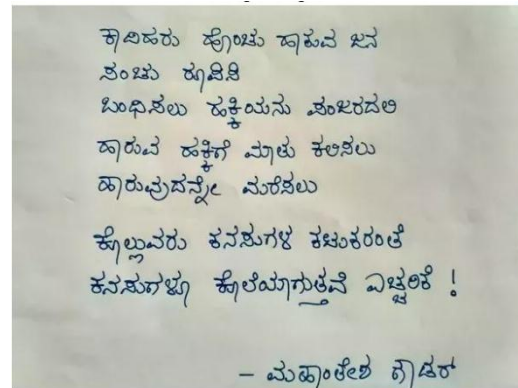 ಕಾದಿಹರು ಹೊಂಚು ಹಾಕುವ ಜನ
ಸಂಚು ರೂಪಿಸಿ
ಬಂಧಿಸಲು ಹಕ್ಕಿಯನು ಪಂಜರದಲಿ
ಹಾರುವ ಹಕ್ಕಿಗೆ ಮಾತು ಕಲಿಸಲು
ಹಾರುವುದನ್ನೇ ಮರೆಸಲು
ಕೊಲ್ಲುವರು ಕನಸುಗಳ ಕಟುಕರಂತೆ
ಕನಸುಗಳೂ ಕೊಲೆಯಾಗುತ್ತವೆ ಎಚ್ಚರಿಕೆ !
- ಮಹಾಂತೇಶ ಗಾಡರ್